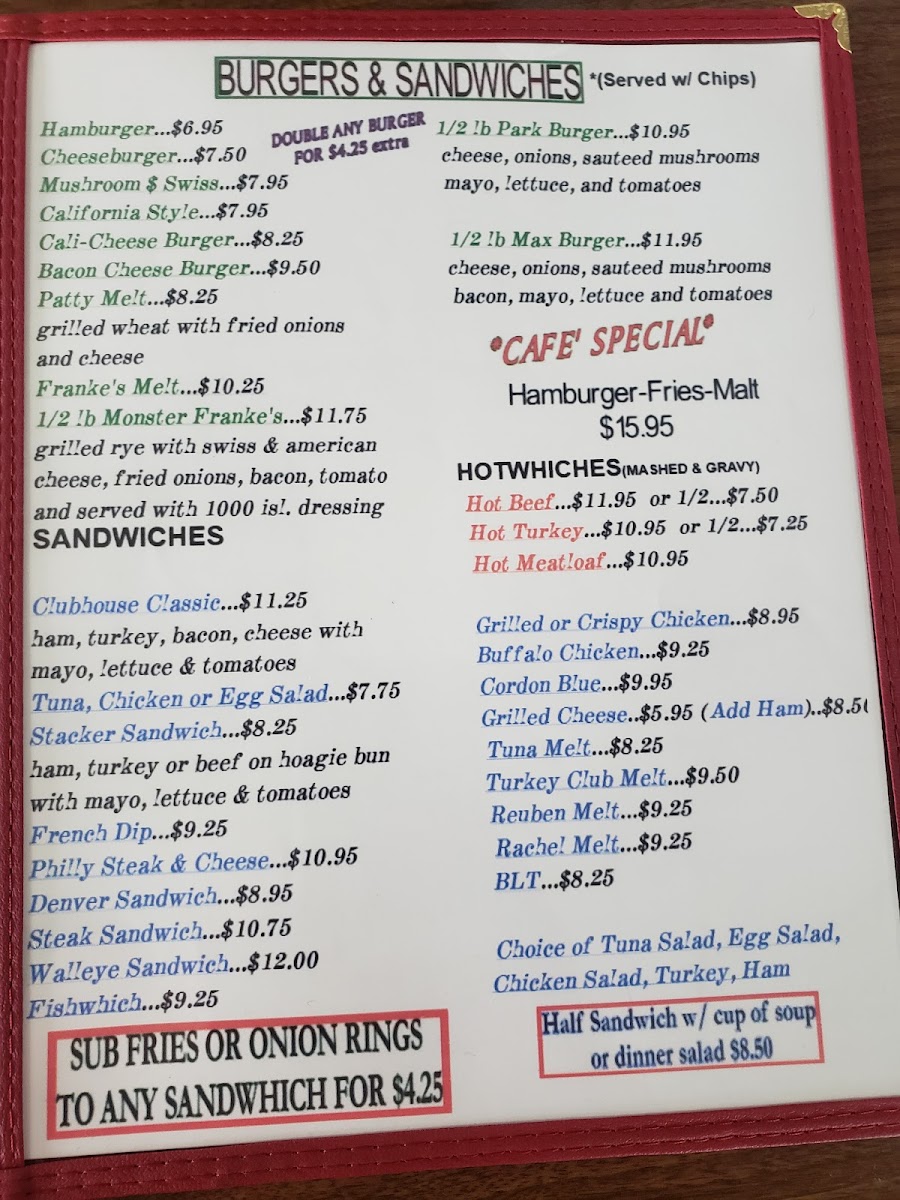 BURGERS & SANDWICHES *(Served w/ Chips)
Hamburger...$6.95
Cheeseburger...$7.50
DOUBLE ANY BURGER
FOR $4.25 extra
Mushroom $ Swiss...$7.95
California Style...$7.95
Cali-Cheese Burger...$8.25
Bacon Cheese Burger...$9.50
Patty Melt...$8.25
grilled wheat with fried onions
and cheese
Franke's Melt...$10.25
1/2 lb Monster Franke's...$11.75
grilled rye with swiss & american
cheese, fried onions, bacon, tomato
and served with 1000 isl. dressing
SANDWICHES
Clubhouse Classic...$11.25
ham, turkey, bacon, cheese with
mayo, lettuce & tomatoes
Tuna, Chicken or Egg Salad...$7.75
Stacker Sandwich...$8.25
ham, turkey or beef on hoagie bun
with mayo, lettuce & tomatoes
French Dip...$9.25
Philly Steak & Cheese...$10.95
Denver Sandwich...$8.95
Steak Sandwich...$10.75
Walleye Sandwich...$12.00
Fishwhich...$9.25
SUB FRIES OR ONION RINGS
TO ANY SANDWHICH FOR $4.25
1/2 lb Park Burger...$10.95
cheese, onions, sauteed mushrooms
mayo, lettuce, and tomatoes
1/2 lb Max Burger...$11.95
cheese, onions, sauteed mushrooms
bacon, mayo, lettuce and tomatoes
*CAFE' SPECIAL*
Hamburger-Fries-Malt
$15.95
HOTWHICHES(MASHED & GRAVY)
Hot Beef...$11.95 or 1/2...$7.50
Hot Turkey...$10.95 or 1/2...$7.25
Hot Meatloaf...$10.95
Grilled or Crispy Chicken...$8.95
Buffalo Chicken...$9.25
Cordon Blue...$9.95
Grilled Cheese..$5.95 (Add Ham)..$8.50
Tuna Melt...$8.25
Turkey Club Melt...$9.50
Reuben Melt...$9.25
Rachel Melt...$9.25
BLT...$8.25
Choice of Tuna Salad, Egg Salad,
Chicken Salad, Turkey, Ham
Half Sandwich w/ cup of soup
or dinner salad $8.50